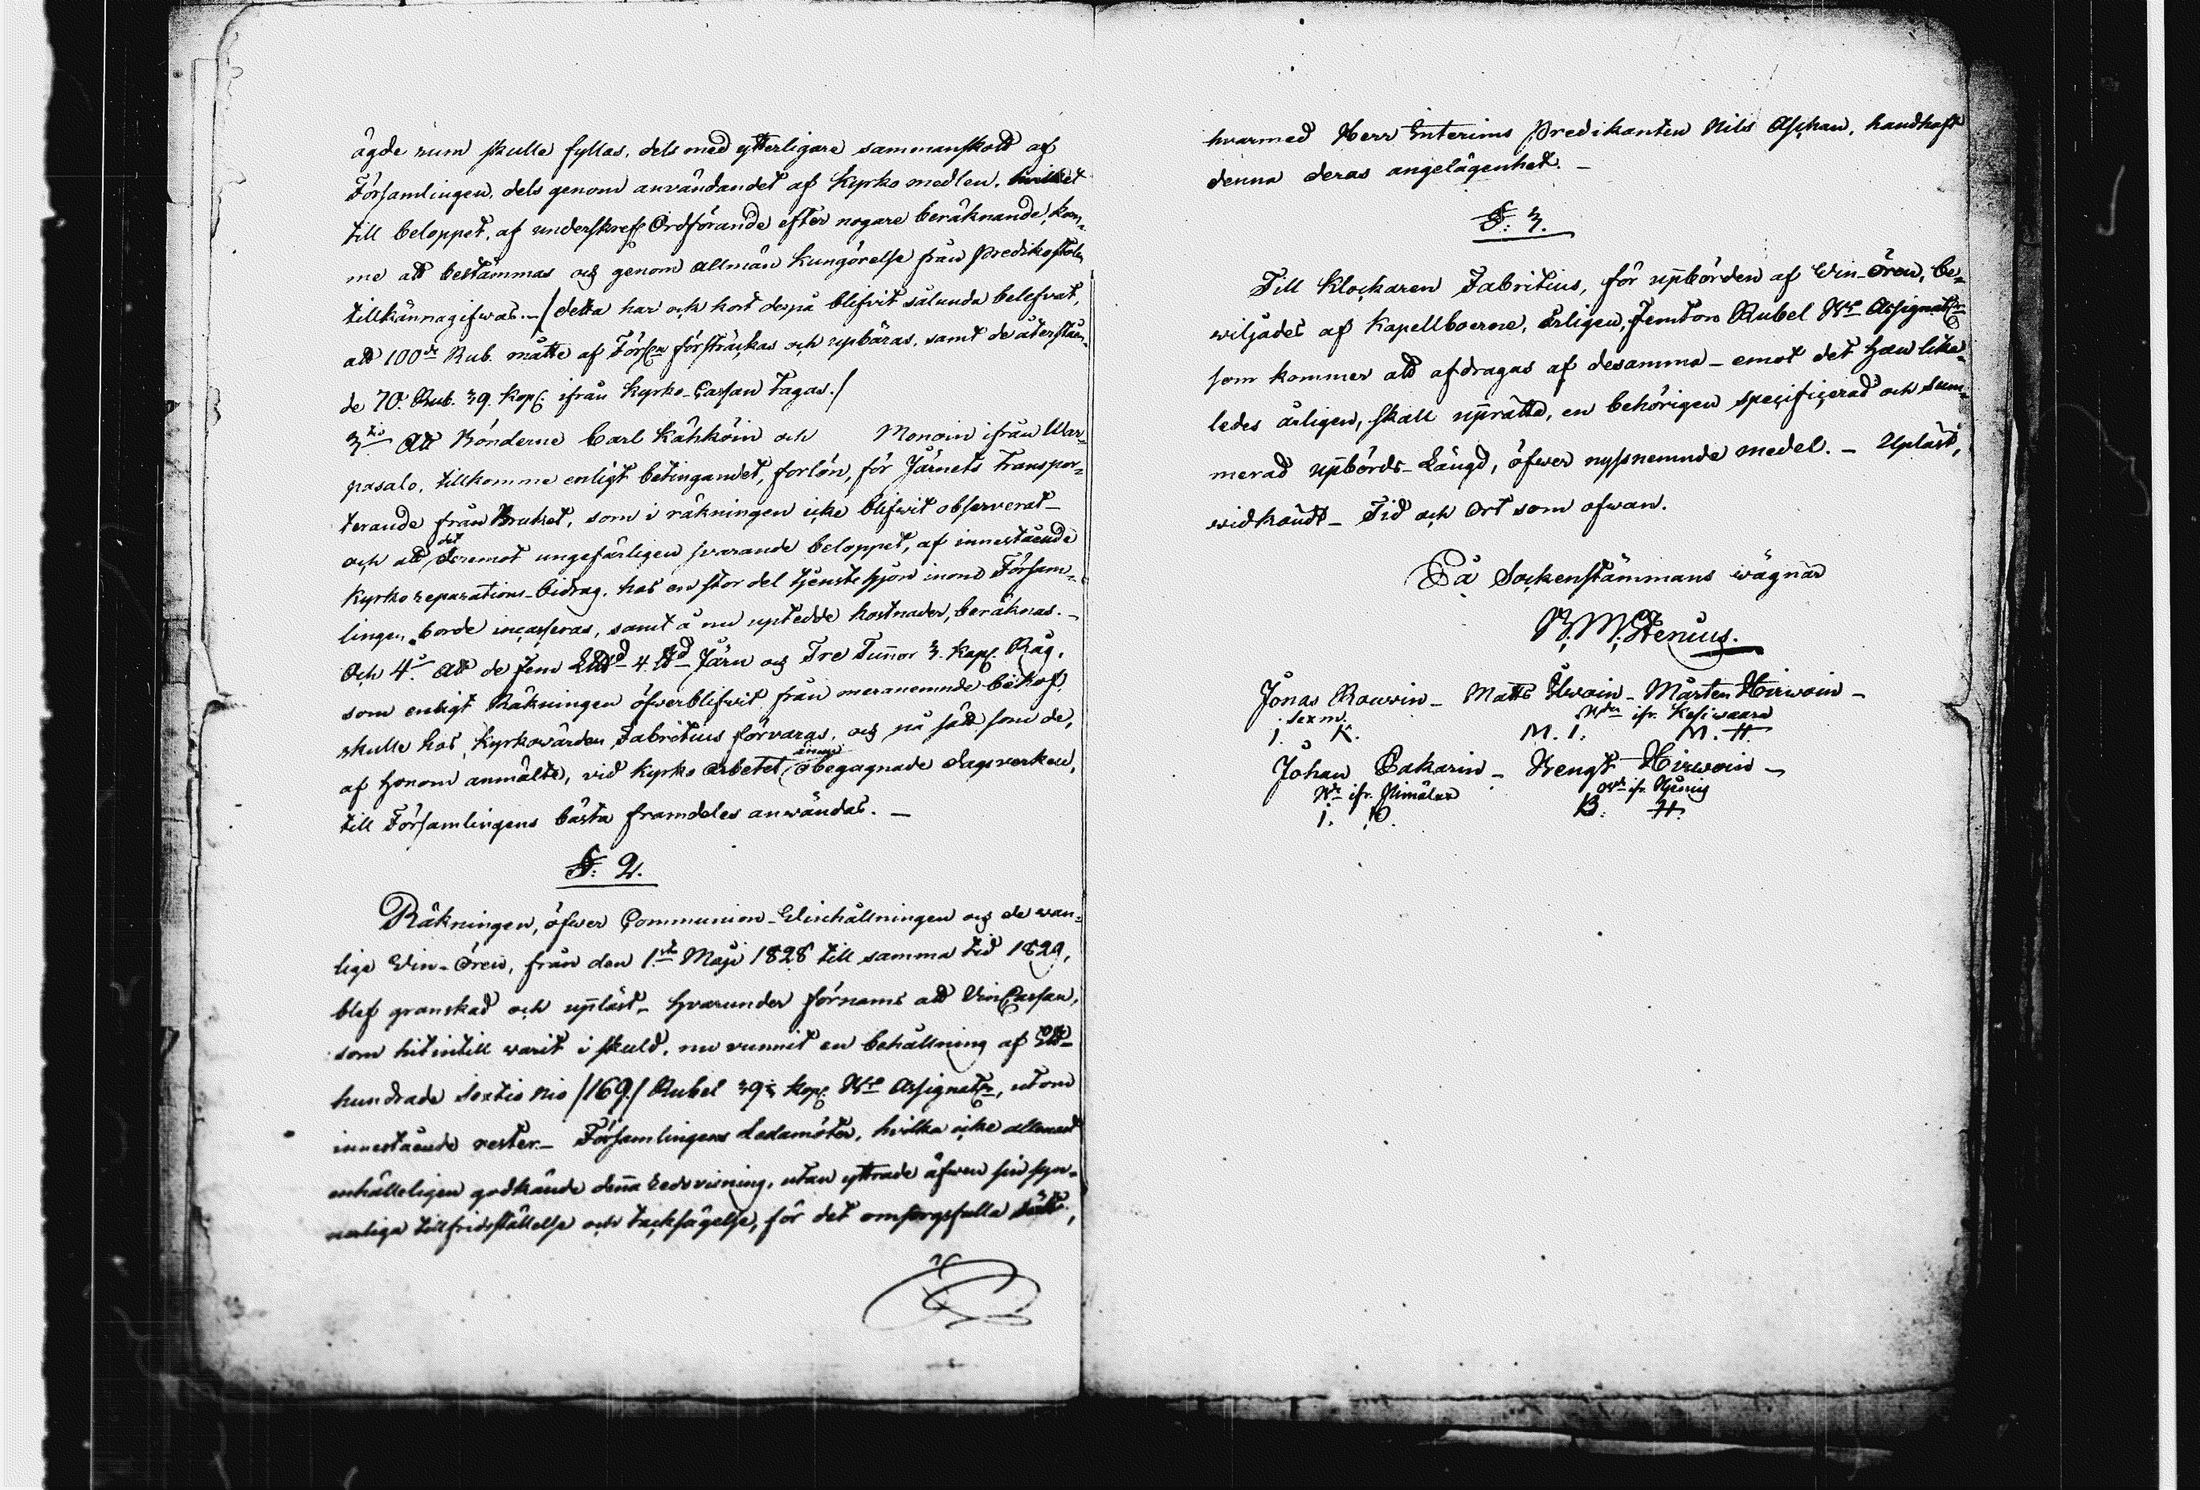 ägde rum skulle fyllas, dels med ytterligare sammanskott af
Församlingen, dels genom användandet af Kyrko medlen, hvilket
till beloppet, af underskrefs Ordförande efter nogare beräknande, kom-
me att bestämmas och genom allmän Kungörelse från Predikostolen
tillkännagifwas. — /detta har och kort derpå blifvit sålunda belefvat,
att 100de Rub. måtte af Förs:en försträckas och upbäras, samt de återståen-
de 70. Rub. 39 Kop: ifrån Kyrko-Cassan tagas./
3tio Att Bönderne Carl Kähköin och Monoin ifrån War-
pasalo, tillkomme enligt betingandet, forlön, för Järnets transpor-
terande från Bruket, som i räkningen icke blifwit observerat —
och att det deremot ungefärligen svarande beloppet, af innestående
Kyrko reparations-Bidrag, hos en stor del tjenstehjon inom Försam-
lingen, borde incasseras, samt å nu uptedde kostnader, beräknas. —
Och 4o Att de fem LWd 4. Wd Järn och Tre Tunnor 3. Kapp. Råg,
som enligt Räkningen öfwerblifwit från meranemnde behof,
skulle hos Kyrkowärden Fabritius förvaras, och på sätt som de,
af honom anmälte, vid Kyrko Arbetet, ännu obegagnade dagsverken,
till Församlingens bästa framdeles anwändas. —
§: 2.
Räkningen, öfwer Communion-Winhållningen och de van-
lige Win-Ören, från den 1sta Maji 1828 till samma tid 1829,
blef granskad och uppläst — hvarunder förnams att VinCassan,
som hitintill warit i skuld, nu vunnit en behållning af Ett-
hundrade Sextio Nio /169/ Rubel 39 Kop: Bco Assignatr, utom
innestående rester. — Församlingens Ledamöter, hvilka icke allenast
enhälleligen godkände denna redovisning, utan yttrade äfwen sin syn-
nerliga tillfridsställelse och tacksägelse, för det omsorgsfulla sätt,
hvarmed Herr Interims Predikanten Nils Aschan, handhaft
denna deras angelägenhet. —
§: 3.
Till Klockaren Fabritius, för uppbörden af Win-Ören, be-
wiljades af Kapellboerne, årligen, femton Rubel Bco Assignatr
som kommer att afdragas af desamma — emot det han lika-
ledes årligen, skall upprätta, en behörigen specificerad och sum-
merad uppbörds-Längd, öfwer nyssnemnde medel. — Upläst,
widkändt — Tid och Ort som ofwan.
På Sockenstämmans wägnar
Jonas Rawoin — Matts Ilwoin — Mårten Hirwoin —
Sexm. Bdr ifr. Kesiwaara
J. K. M. I. M. H.
Johan Pakarin — Bengt Hirwoin —
J. P. B. H.